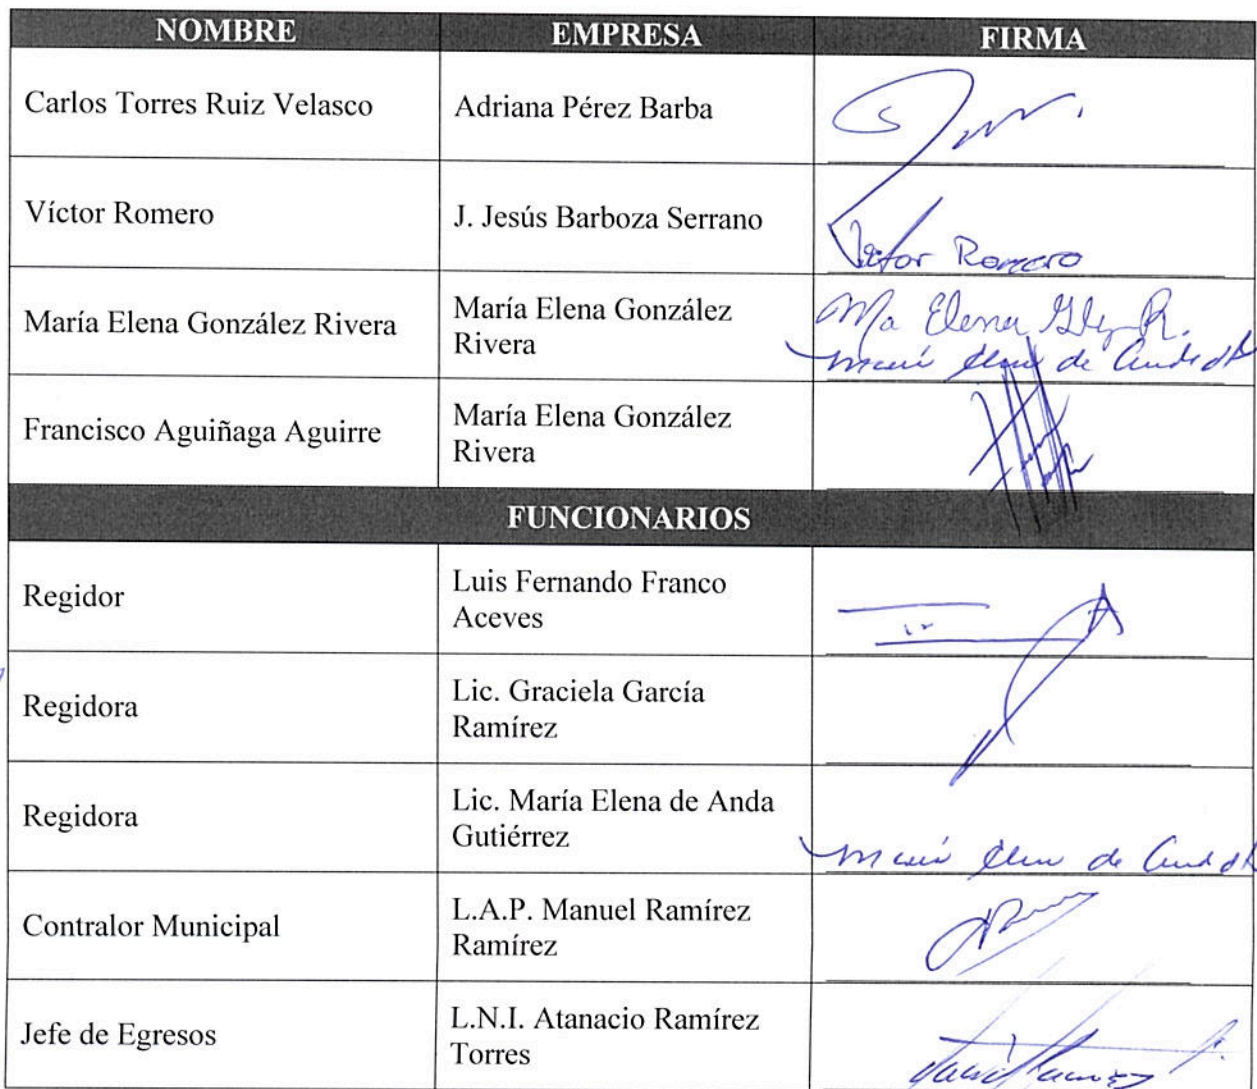 NOMBRE EMPRESA FIRMA
Carlos Torres Ruiz Velasco Adriana Pérez Barba
Víctor Romero J. Jesús Barboza Serrano
Victor Romero
María Elena González Rivera María Elena González
Rivera
Ma Elena Glez R.
de
Francisco Aguiñaga Aguirre María Elena González
Rivera
FUNCIONARIOS
Regidor Luis Fernando Franco
Aceves
Regidora Lic. Graciela García
Ramírez
Regidora Lic. María Elena de Anda
Gutiérrez
de
Contralor Municipal L.A.P. Manuel Ramírez
Ramírez
Jefe de Egresos L.N.I. Atanacio Ramírez
Torres